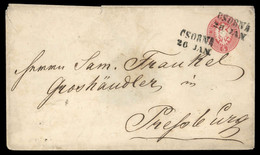 CSORNA
26 JAN.
CSORNA
26 JAN.
Herrn Sam. Fraenkel
Großhändler in
Preßburg